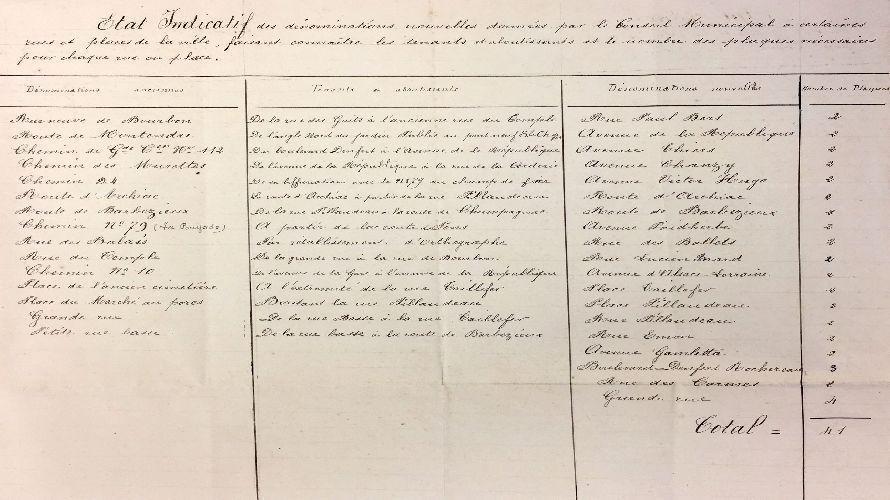 Etat Indicatif des dénominations nouvelles données par le Conseil Municipal à certaines
rues et places de la ville, faisant connaître les tenants et aboutissants et le nombre des plaques nécessaires
pour chaque rue ou place.
Dénominations anciennes Tenants et aboutissants Dénominations nouvelles Nombre de Plaques
Rue neuve de Bourbon De la rue des Guits à l'ancienne rue du Temple Rue Paul Bert 2
Route de Montendre De l'angle Nord du jardin Public au pont neuf Avenue de la République 2
Chemin de Gde Con No 142 Du boulevard Denfert à l'Avenue de la République Avenue Thiers 2
Chemin des Murettes De l'avenue de la République à la rue de la Avenue Chanzy 2
Chemin D. 4 De sa bifurcation avec le No 79 au champ de foire Avenue Victor Hugo 2
Route d'Archiac La route d'Archiac à partir de la rue Pillaudeau Route d'Archiac 2
Route de Barbezieux De la rue Pillaudeau à la route de Champagnac Route de Barbezieux 2
Chemin No 79 A partir de la route de Pons Avenue Faidherbe 2
Rue des Balais Pour rétablissement d'Orthographe Rue des Ballets 2
Rue du Temple De la grande rue à la rue de Bourbon Rue Lucien 2
Chemin No 10 De l'avenue de la Gare à l'avenue de la République Avenue d'Alsace-Lorraine 2
Place de l'ancien cimetière A l'extrémité de la rue Taillefer Place Taillefer
Place du Marché au porcs Bordant la rue Pillaudeau Place Pillaudeau 2
Grande rue De la rue Basse à la rue Taillefer Rue Pillaudeau 2
Petite rue basse De la rue basse à la route de Barbezieux Rue 2
Avenue Gambetta 2
Boulevard Denfert Rochereau 3
Rue des Carmes 2
Grande rue 4
Total = 41